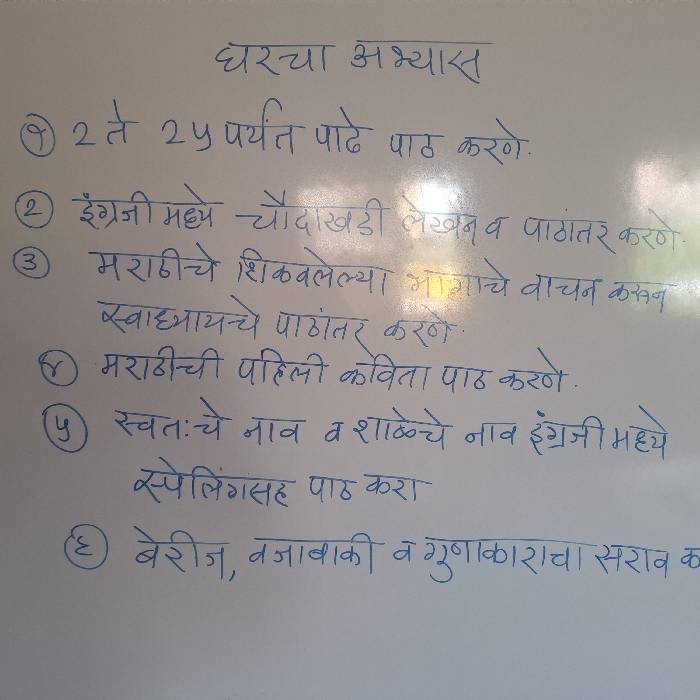 घरचा अभ्यास
१ 2 ते 25 पर्यंत पाढे पाठ करणे.
२ इंग्रजी मध्ये चौदाखडी लेखन व पाठांतर करणे.
३ मराठीचे शिकवलेल्या भागाचे वाचन करून
स्वाध्यायचे पाठांतर करणे.
४ मराठीची पहिली कविता पाठ करणे.
५ स्वतःचे नाव व शाळेचे नाव इंग्रजी मध्ये
स्पेलिंगसह पाठ करा
६ बेरीज, वजाबाकी व गुणाकाराचा सराव क